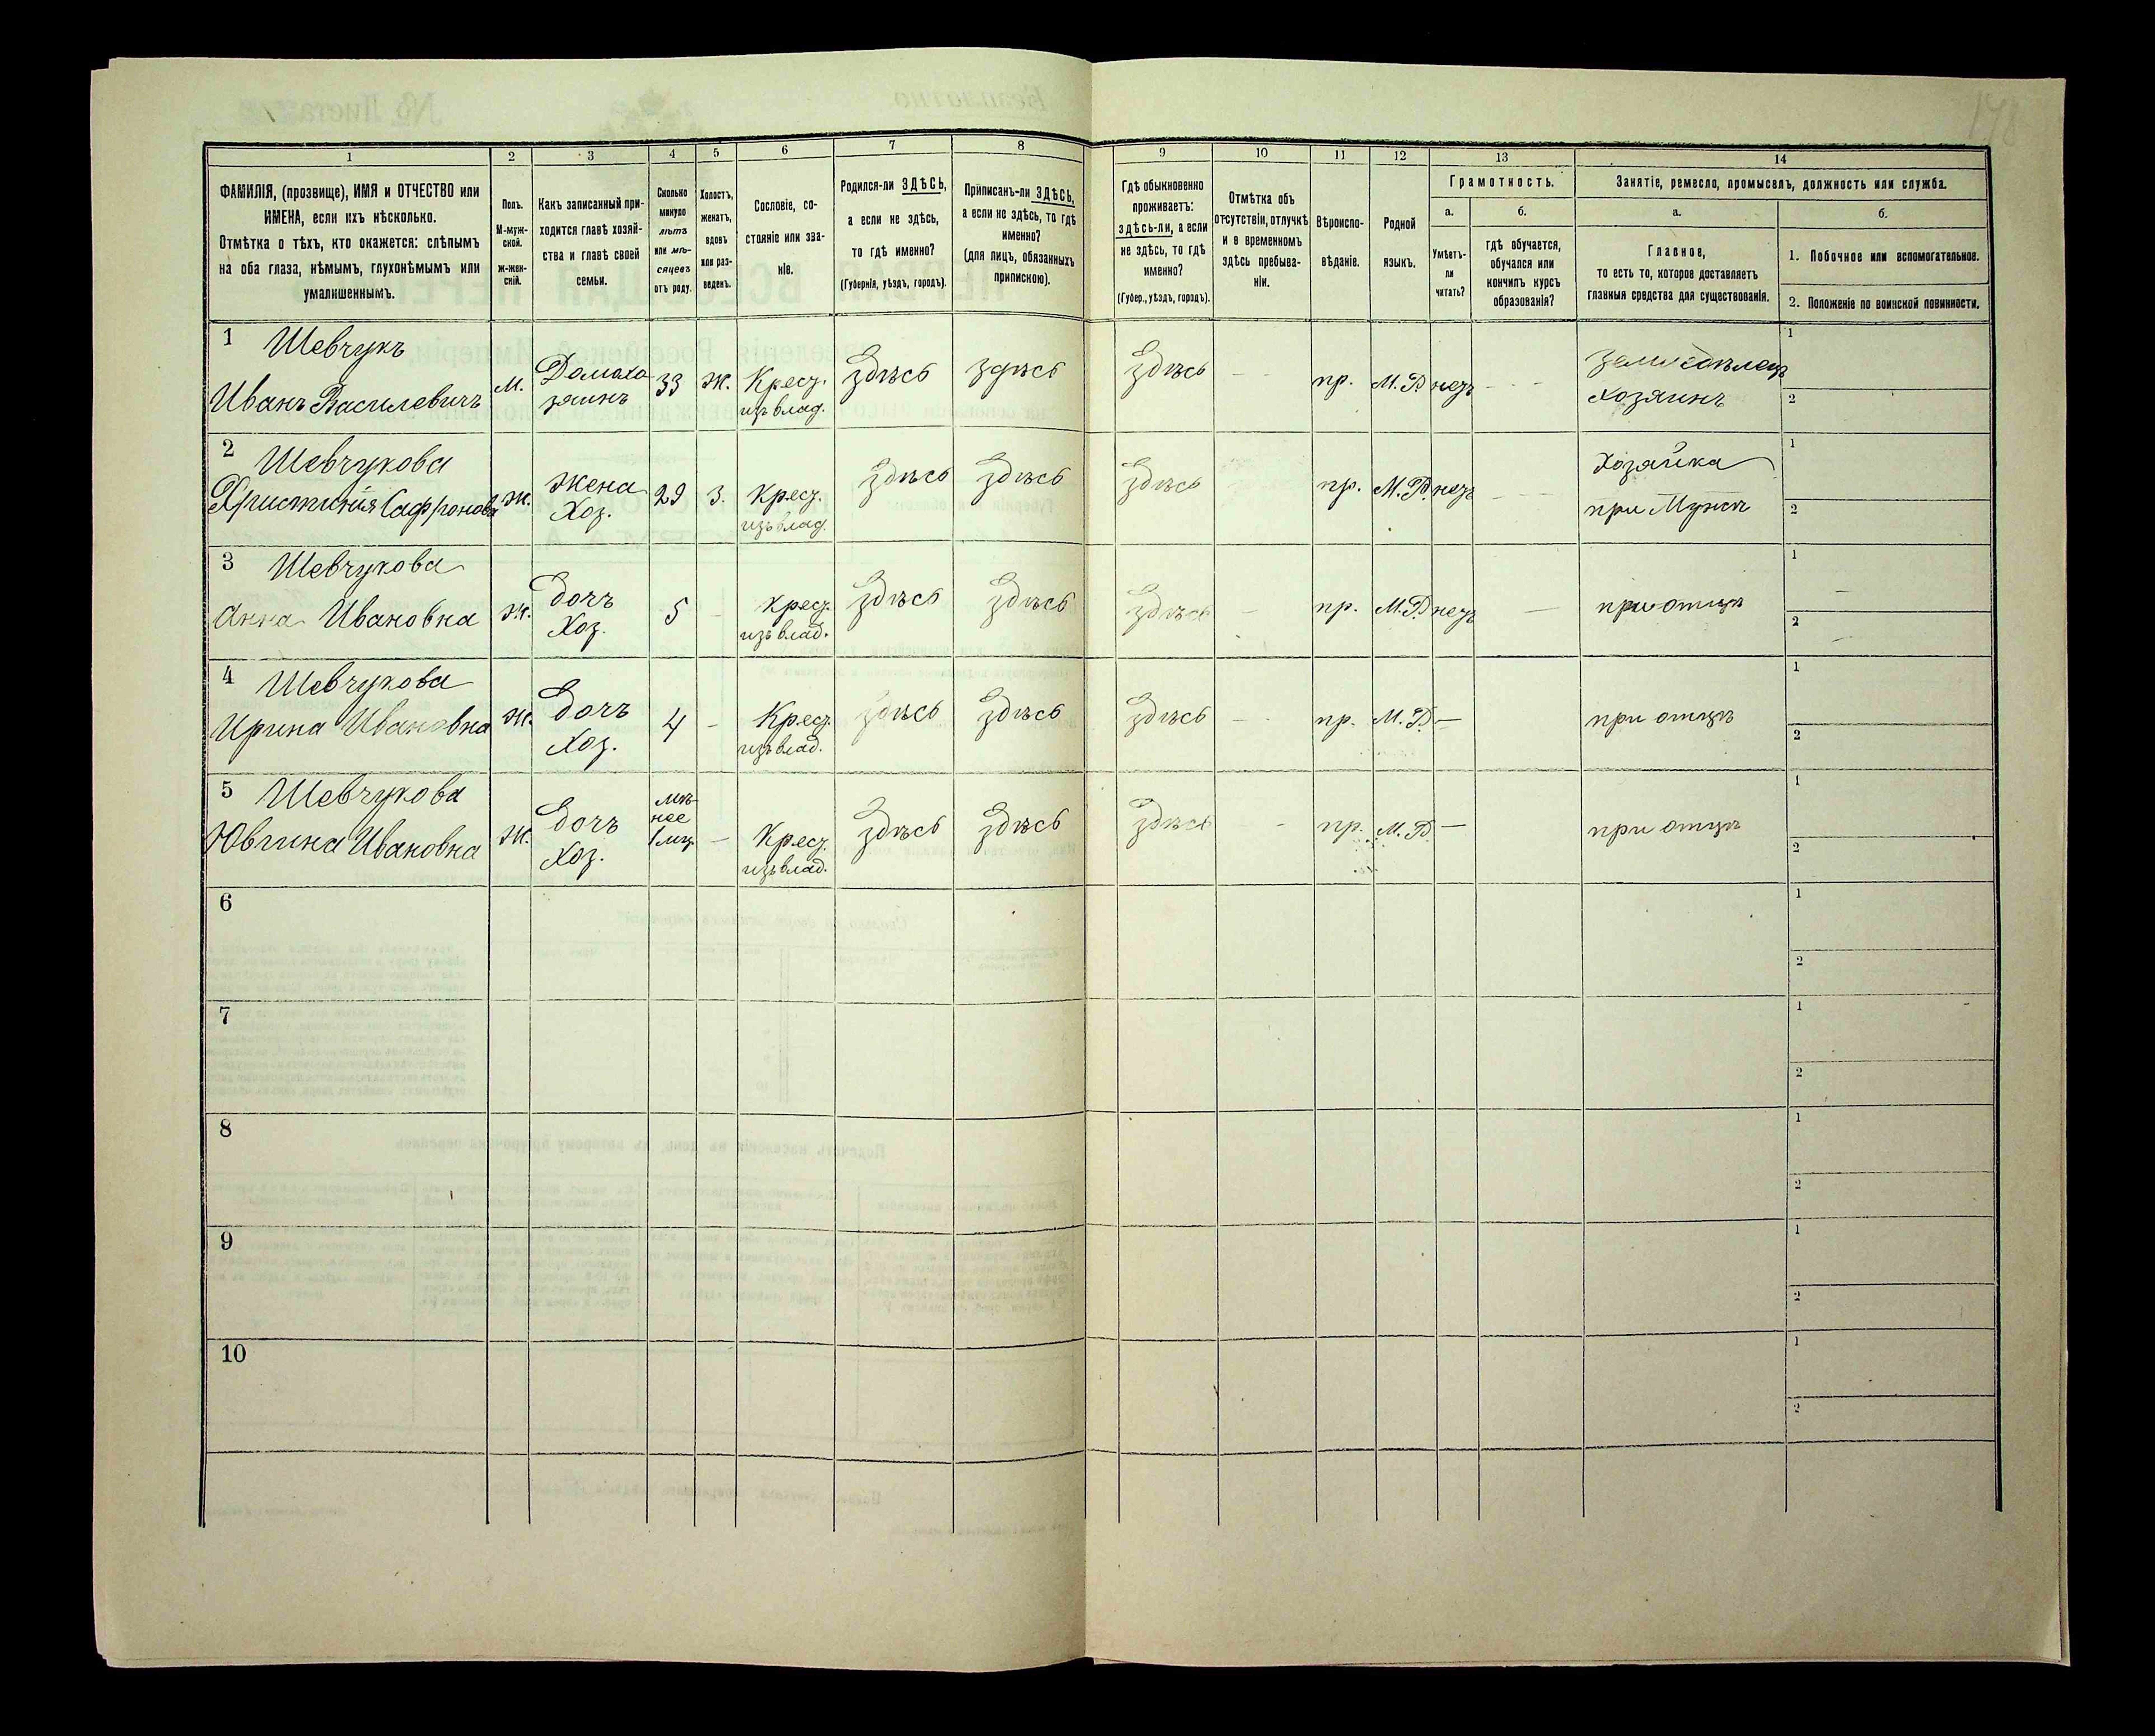 1 2 3 4 5 6 7 8 9 10 11 12 13 14
ФАМИЛІЯ, (прозвище), ИМЯ и ОТЧЕСТВО или
ИМЕНА, если ихъ нѣсколько.
Отмѣтка о тѣхъ, кто окажется: слѣпымъ
на оба глаза, нѣмымъ, глухонѣмымъ или
умалишеннымъ.
Полъ.
М-муж-
ской.
ж-жен-
скій.
Какъ записанный при-
ходится главѣ хозяй-
ства и главѣ своей
семьи.
Сколько
минуло
лѣтъ
или мѣ-
сяцевъ
отъ роду.
Холостъ,
женатъ,
вдовъ
или раз-
веденъ.
Сословіе, со-
стояніе или зва-
ніе.
Родился-ли ЗДѢСЬ,
а если не здѣсь,
то гдѣ именно?
(Губернія, уѣздъ, городъ).
Приписанъ-ли ЗДѢСЬ,
а если не здѣсь, то гдѣ
именно?
(для лицъ, обязанныхъ
припискою).
Гдѣ обыкновенно
проживаетъ:
здѣсь-ли, а если
не здѣсь, то гдѣ
именно?
(Губер., уѣздъ, городъ).
Отмѣтка объ
отсутствіи, отлучкѣ
и о временномъ
здѣсь пребыва-
ніи.
Вѣроиспо-
вѣданіе.
Родной
языкъ.
Грамотность.
а.
Умѣетъ-
ли
читать?
б.
гдѣ обучается,
обучался или
кончилъ курсъ
образованія?
Занятіе, ремесло, промыселъ, должность или служба.
а.
Главное,
то есть то, которое доставляетъ
главныя средства для существованія.
б.
1. Побочное или вспомогательное.
2. Положеніе по воинской повинности.
1 Шевчукъ
Иванъ Василевичъ
м.
Домохо
зяинъ
33 ж.
Крес.
изъ влад.
здѣсь здѣсь здѣсь - - пр. М.Р. нетъ - - -
Земледѣлецъ
хозяинъ
1
2
2 Шевчукова
Христинія Сафронова
ж.
Жена
Хоз.
29 З.
Крес.
изъ влад.
здѣсь здѣсь здѣсь пр. М.Р. нетъ - -
Хозяйка
при Мужѣ
1
2
3 Шевчукова
Анна Ивановна
ж.
дочъ
Хоз.
5 -
Крес.
изъ влад.
здѣсь здѣсь здѣсь - пр. М.Р. нетъ —
при отцѣ
1 —
2 —
4 Шевчукова
Ирина Ивановна
ж.
дочъ
Хоз.
4 -
Крес.
изъ влад.
здѣсь здѣсь здѣсь - - пр. М.Р. —
при отцѣ
1
2
5 Шевчукова
Ювгина Ивановна
ж.
дочъ
Хоз.
мѣ-
нее
1 мц.
—
Крес.
изъ влад.
здѣсь здѣсь здѣсь - пр. М.Р. —
при отцѣ
1
2
6
1
2
7
1
2
8
1
2
9
1
2
10
1
2